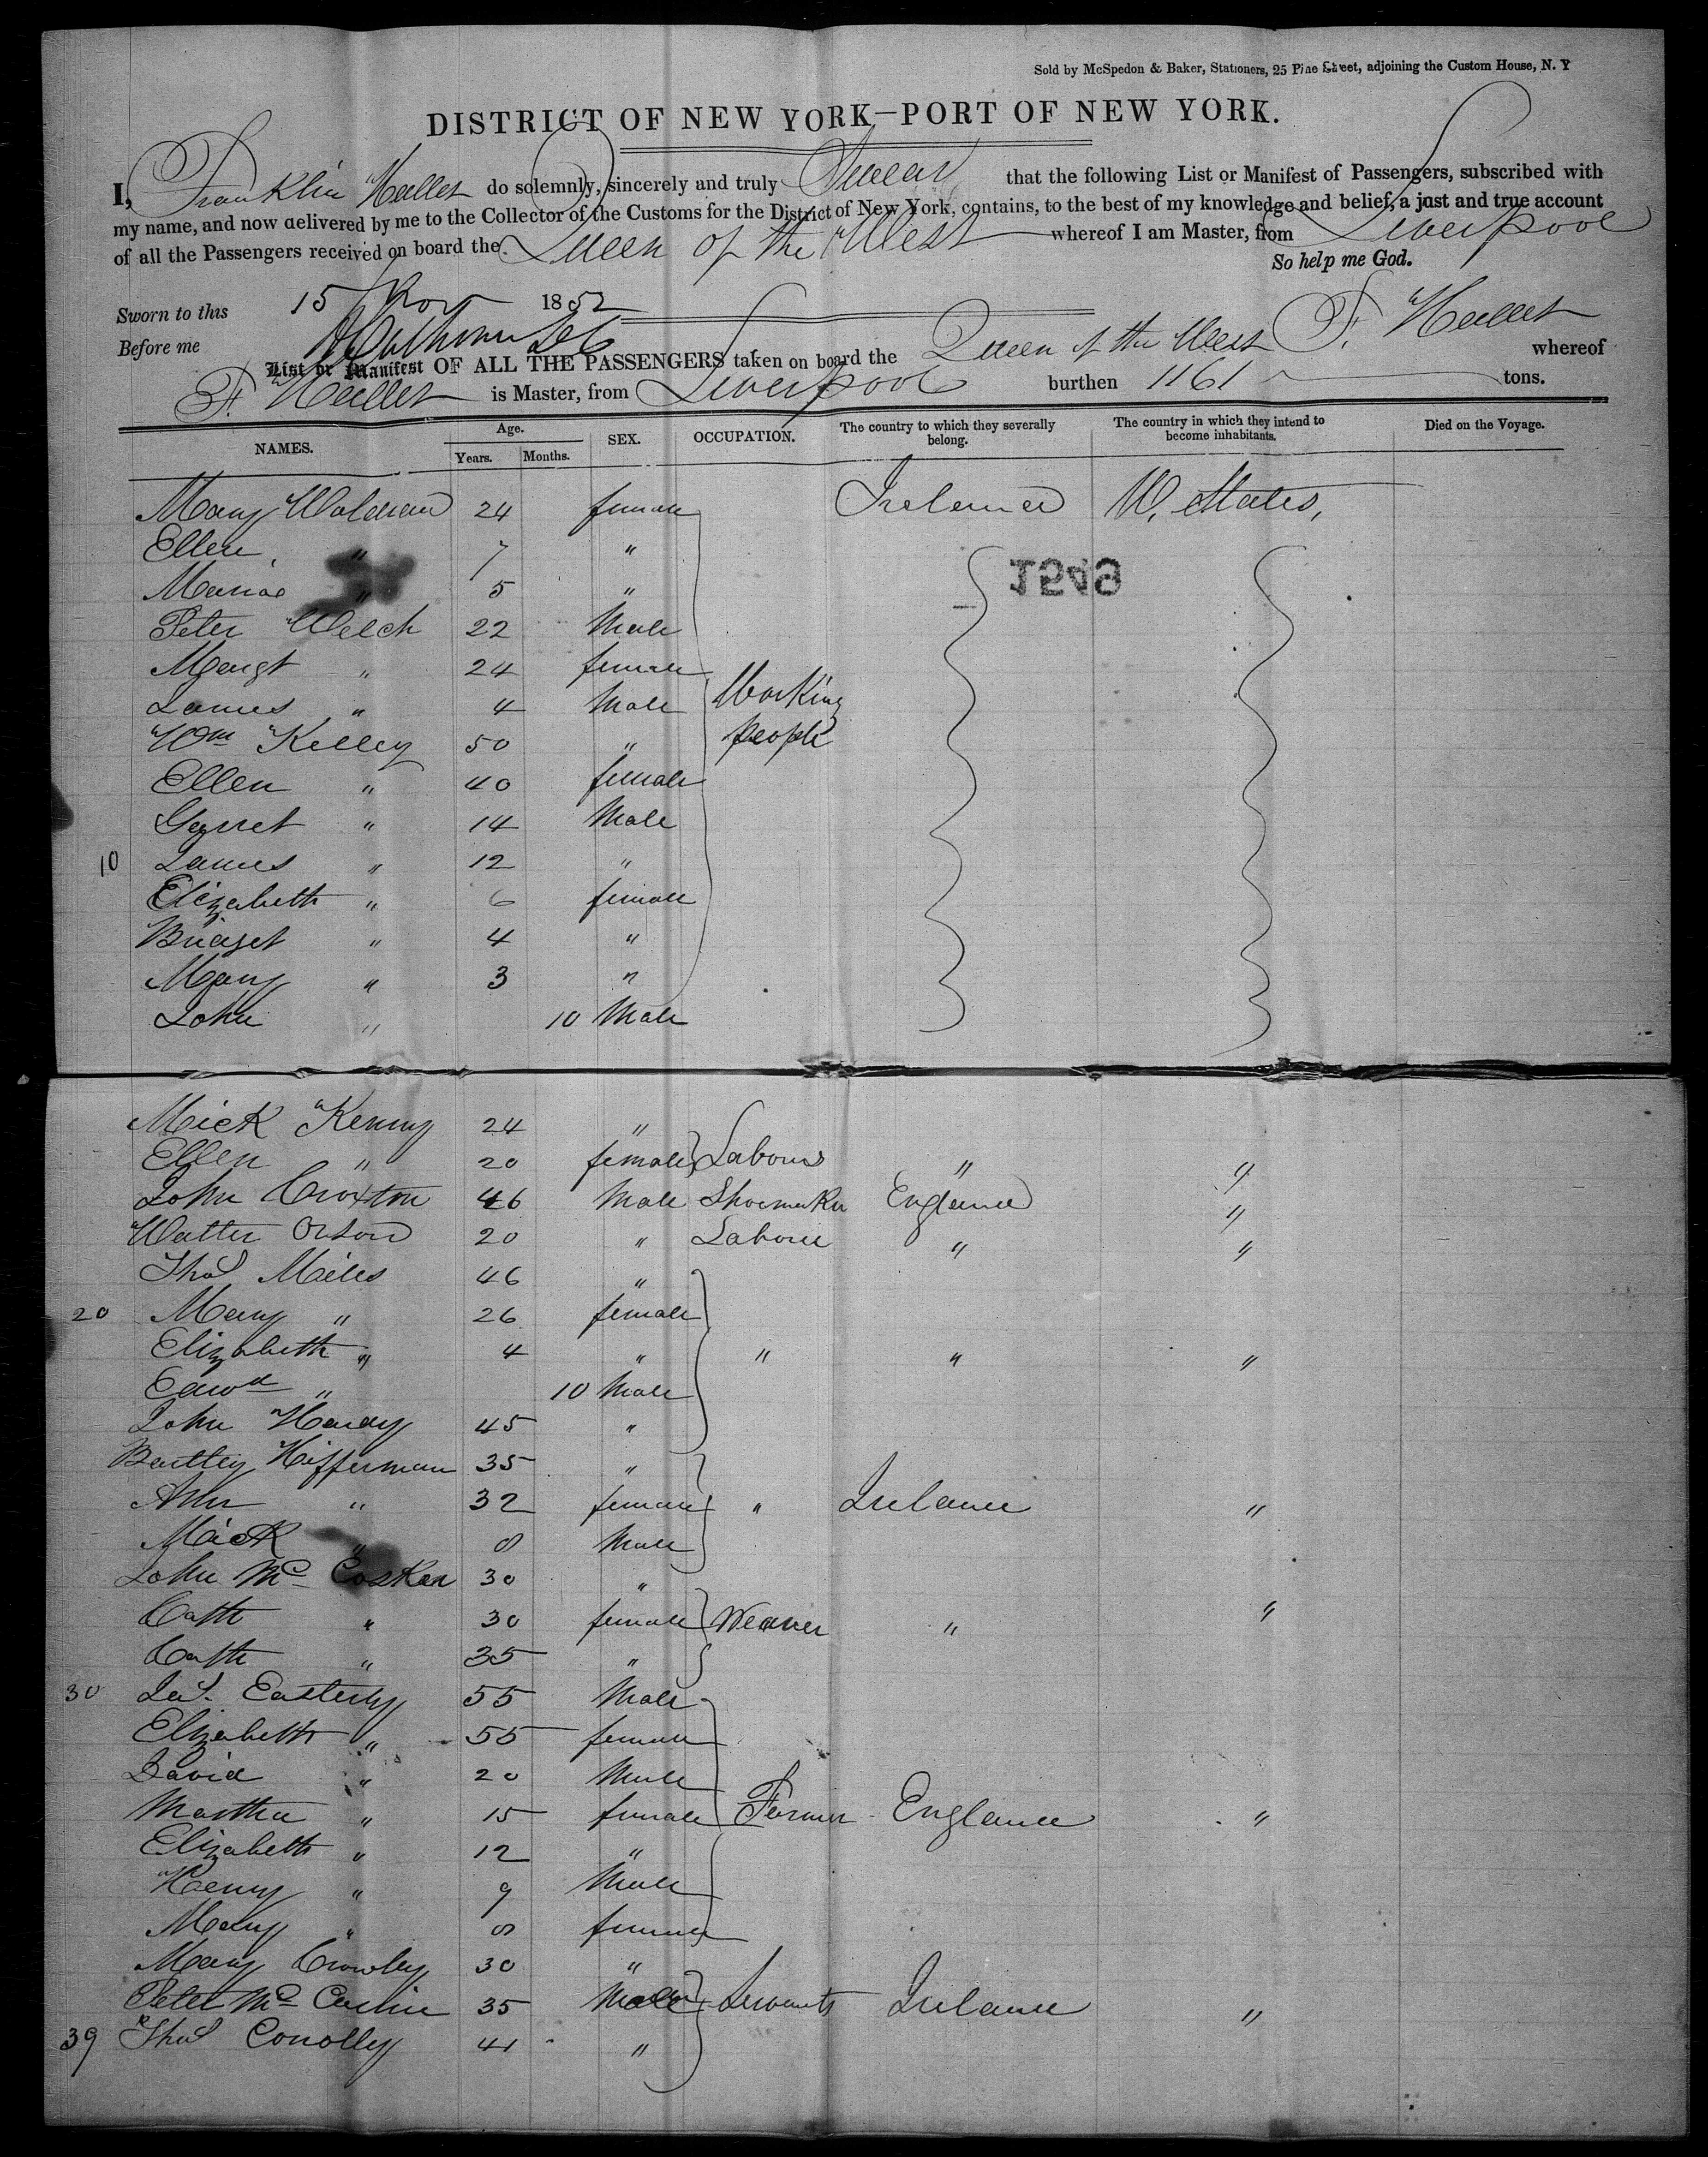 Sold by McSpedon & Baker, Stationers, 25 Pine Street, adjoining the Custom House, N. Y
DISTRICT OF NEW YORK—PORT OF NEW YORK.
I, Franklin Hallet do solemnly, sincerely and truly Swear that the following List or Manifest of Passengers, subscribed with
my name, and now delivered by me to the Collector of the Customs for the District of New York, contains, to the best of my knowledge and belief, a just and true account
of all the Passengers received on board the Queen of the West whereof I am Master, from Liverpool
So help me God.
Sworn to this 15 Nov 1852
Before me F. Hallet
List or Manifest OF ALL THE PASSENGERS taken on board the Queen of the West whereof
F. Hallet is Master, from Liverpool burthen 1161 tons.
NAMES. Age. Years. Months. SEX. OCCUPATION. The country to which they severally belong. The country in which they intend to become inhabitants. Died on the Voyage.
Mary 24 female Ireland U. States,
Ellen " 7 "
1549
Maria " 5 "
Peter Welch 22 Male
Margt " 24 female
James " 4 Male Working
Wm Kelley 50 " people
Ellen " 40 female
Garret " 14 Male
10 James " 12 "
Elizabeth " 6 female
Bridget " 4 "
Mary " 3 "
John " 10 Male
Mick Kenny 24 "
Ellen " 20 female Labours " "
John Croxton 46 Male Shoemaker England "
Walter Orton 20 " Labour " "
Thos Miles 46 "
20 Mary " 26 female
Elizabeth " 4 " " " "
Edwd " 10 Male
John Hardy 45 "
Bentley Hifferman 35 "
Ann " 32 female " Ireland "
Mick " 8 Male
John Mc Cosker 30 "
Cath " 30 female Weaver " "
Cath " 35 "
30 Jas. Easterby 55 Male
Elizabeth " 55 female
David " 20 Male
Martha " 15 female Farmer England "
Elizabeth " 12 "
Henry " 9 Male
Mary " 8 female
Mary Crowley 30 "
Peter Mc 35 Male Servants Ireland "
39 Thos Conolly 41 "